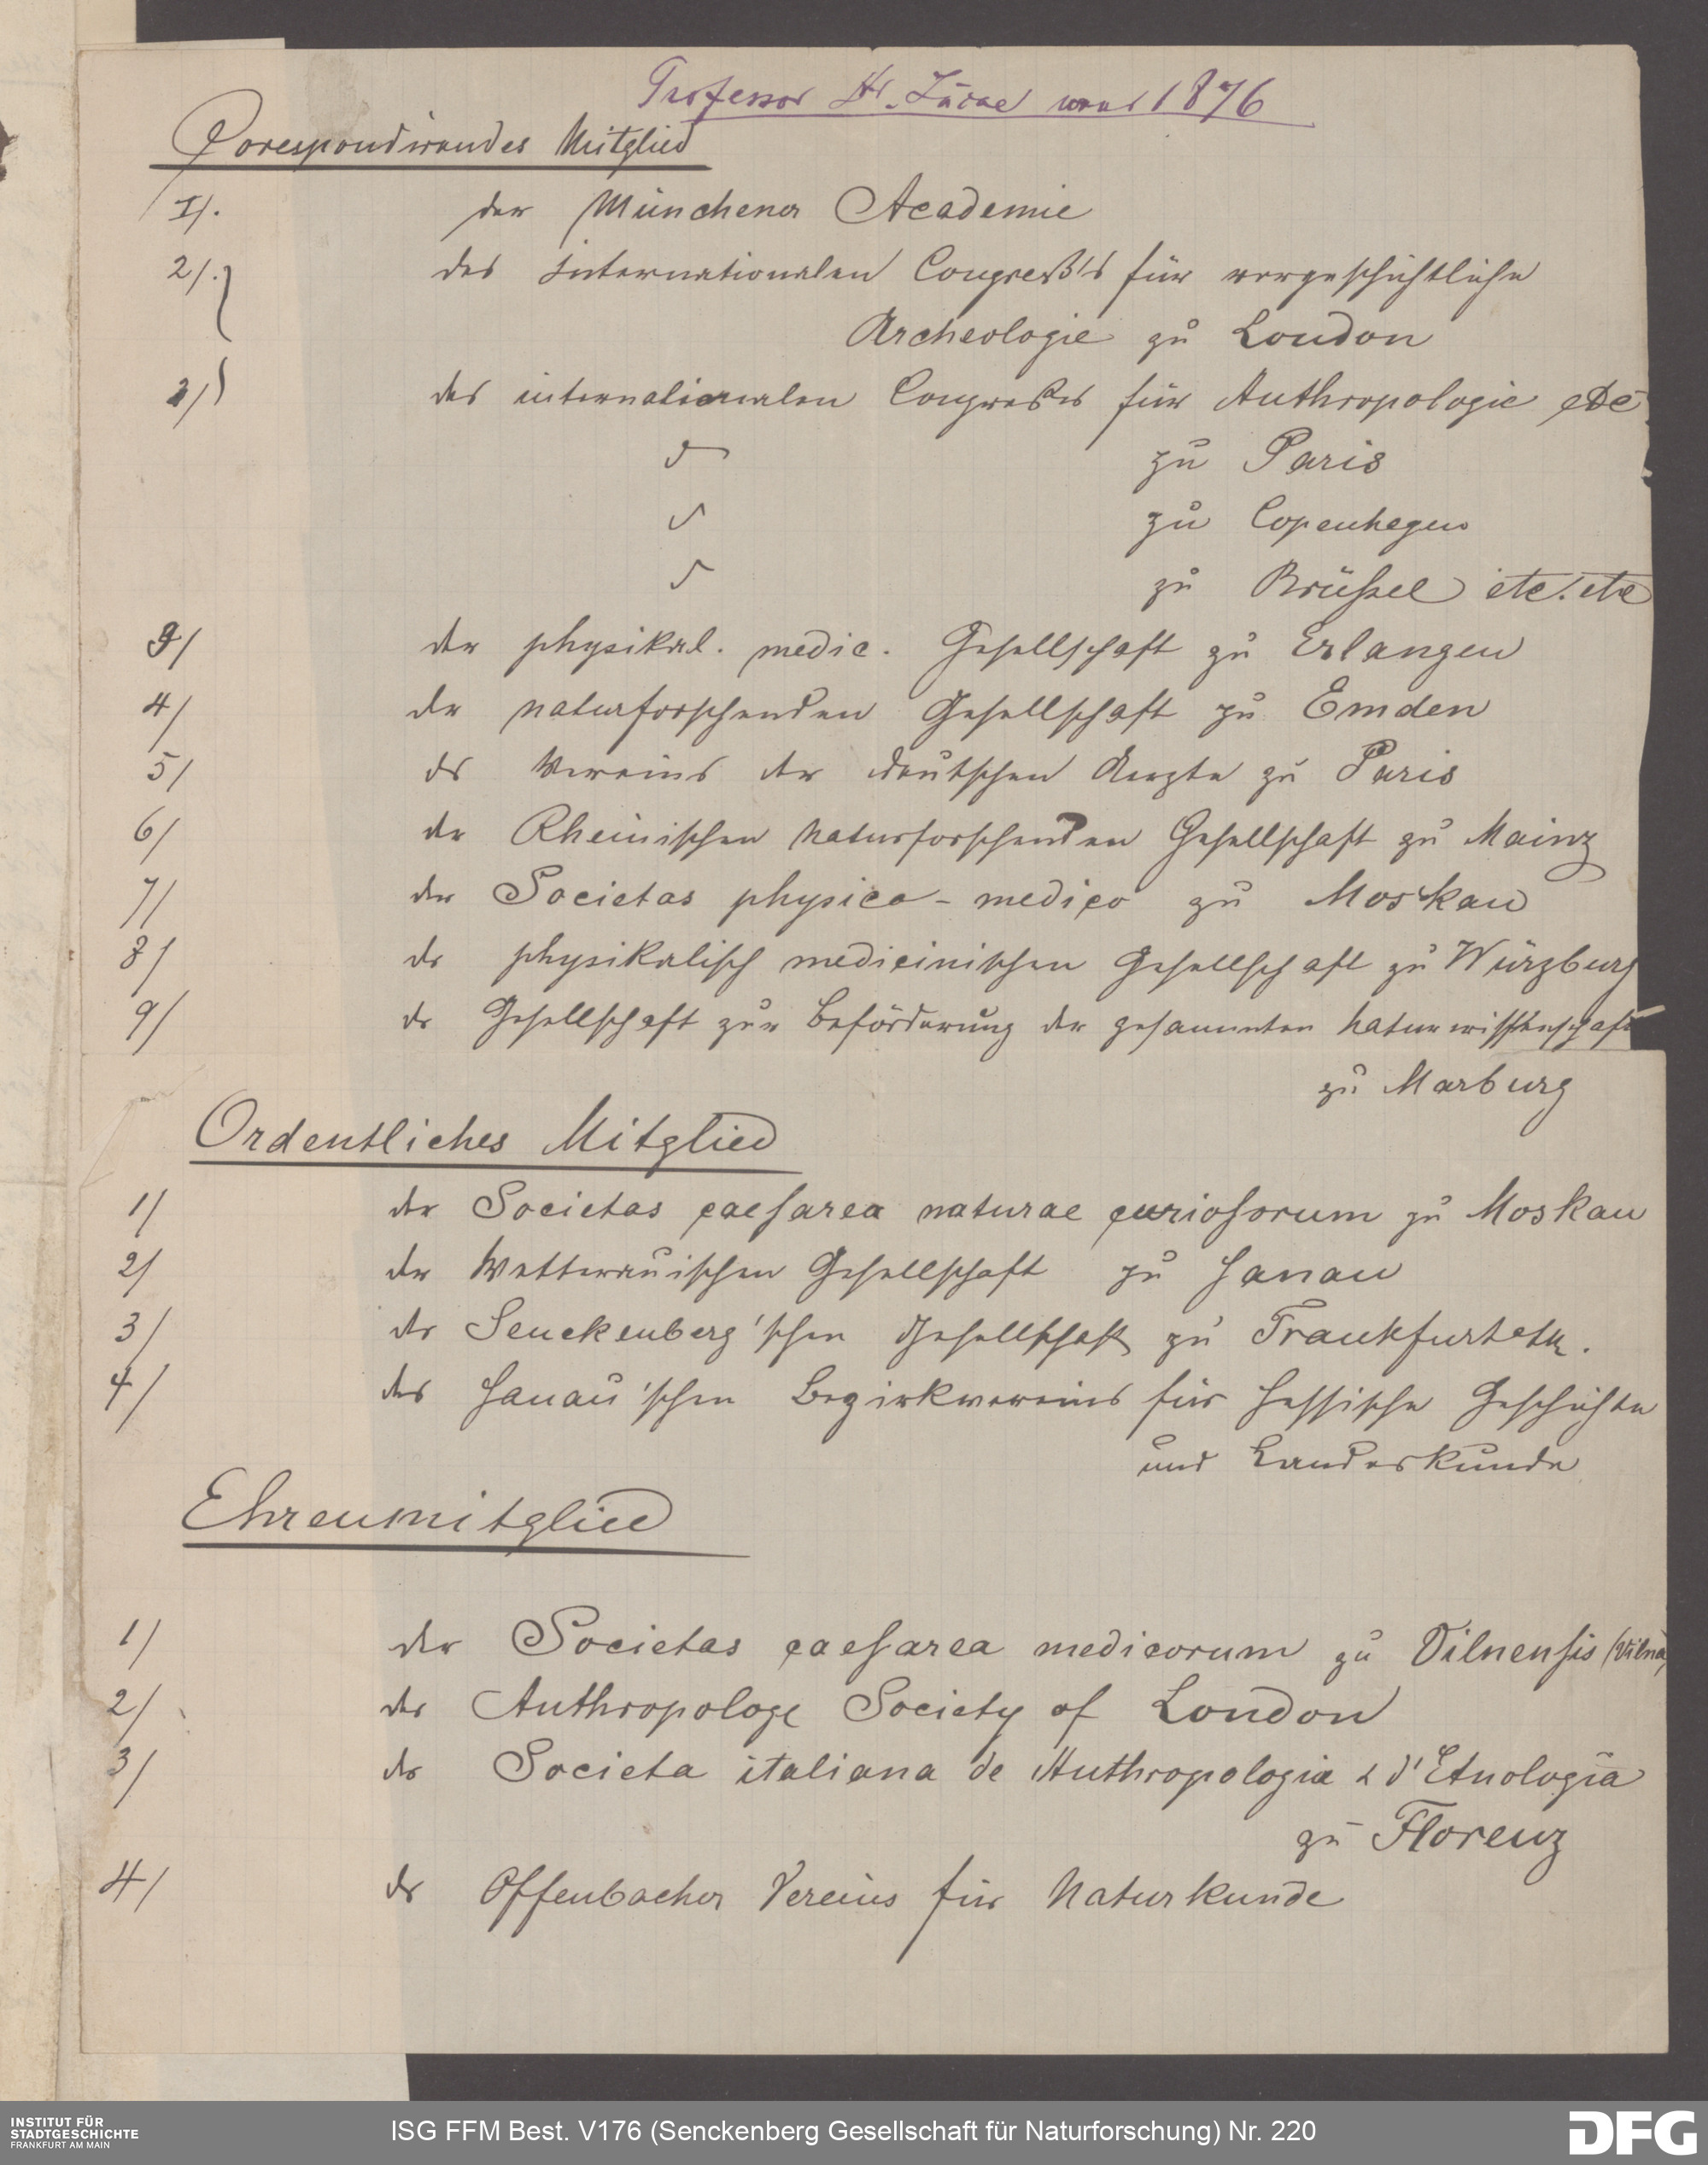 Professor Dr. Lucae war 1876
Corespondirendes Mitglied
1/. der Münchener Academie
2/. des internationalen Congreß's für vorgeschichtliche
Archeologie zu London
2/ des internationalen Congreßes für Anthropologie etc
zu Paris
zu Copenhagen
zu Brüßel etc. etc
3/ der physikal. medic. Gesellschaft zu Erlangen
4/ der naturforschenden Gesellschaft zu Emden
5/ des Vereins der deutschen Aerzte zu Paris
6/ der Rheinischen naturforschenden Gesellschaft zu Mainz
7/ der Societas physico-medico zu Moskau
8/ der physikalisch medicinischen Gesellschaft zu Würzburg
9/ der Gesellschaft zur Beförderung der gesammten Naturwissenschaft
zu Marburg
Ordentliches Mitglied
1/ der Societas caesarea naturae curiosorum zu Moskau
2/ der Wetterauischen Gesellschaft zu Hanau
3/ der Senckenberg'schen Gesellschaft zu Frankfurt
4/ des Hanau'schen Bezirkvereins für hessische Geschichte
und Landeskunde
Ehrenmitglied
1/ der Societas caesarea medicorum zu Vilnensis (Vilna)
2/ der Anthropologe Society of London
3/ der Societa italiana de Anthropologia & d'Etnologia
zu Florenz
4/ des Offenbacher Vereins für Naturkunde
INSTITUT FÜR
STADTGESCHICHTE
FRANKFURT AM MAIN
ISG FFM Best. V176 (Senckenberg Gesellschaft für Naturforschung) Nr. 220
DFG